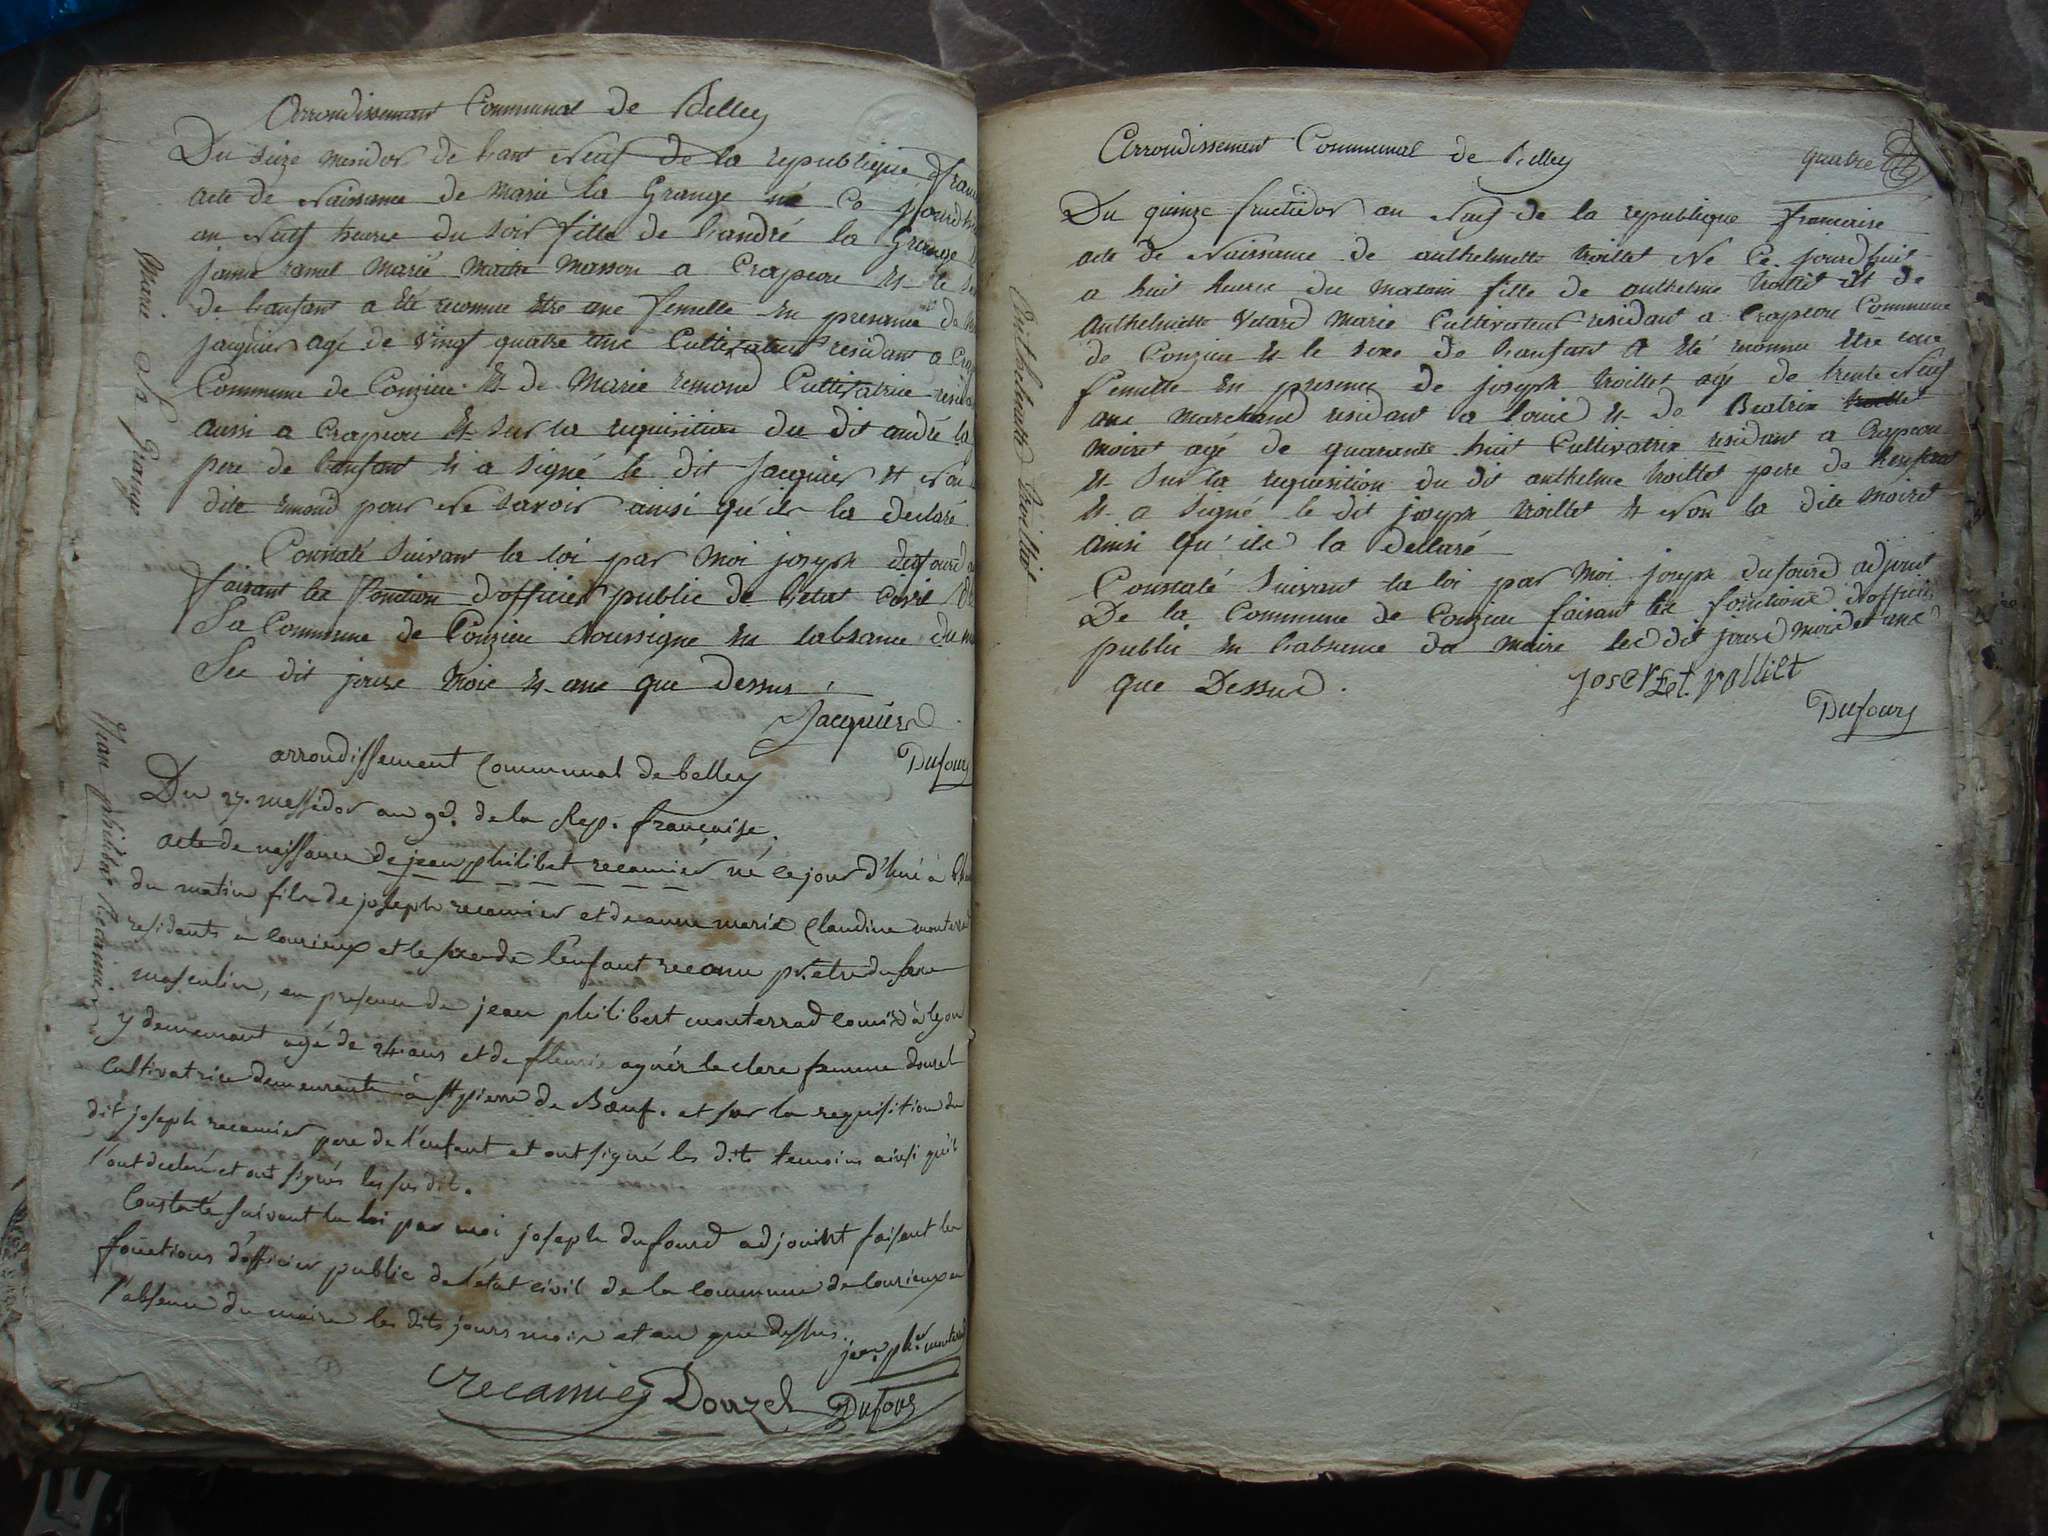 Arrondissement Communal de Belley
Du seize mesidor de l'ant Neuf de la republique
acte de Naissance de marie la Grange né Ce
au Neuf heures du soir fille de Landré la Grange
ramel Marié masson a Crapeou et le
de l'anfant a été reconnu être une femelle en presance de
jacquier agé de vingt quatre ans Cultivateur residant a
Commune de Conzieu Et de Marie remond Cultivatrice
aussi a Crapeou Et Sur la requisition du dit andré la
pere de l'anfant Et a signé le dit jacquier et Non
dite remond pour Ne savoir ainsi qu'ils la declaré
Constaté suivant la loi par moi joseph dufourd
faisant les fonction d'officier public de l'etat Civil
La Commune de Conzieu soussigné en labsance du
Les dit jours mois et ans que dessus
Jacquier
Dufour
Marie La Grange
arrondissement communal de belley
Du 27. messidor an 9e. de la Rep. française.
acte de naissance de jean philibert recamier né ce jour d'hui à
du matin fils de joseph recamier et de anne marie Claudine
residents à et le sexe de l'enfant reconu pr. etre du sexe
masculin, en presence de jean philibert monterrad à lyon
y demeurant agé de 24 ans et de fleurie agnés leclerc femme douzel
cultivatrice demeurante à St pierre de Bœuf. et sur la requisition du
dit joseph recamier pere de l'enfant et ont signé les dits temoins ainsi qu'ils
l'ont declaré et ont signés les susdit.
Constaté suivant la loi par moi joseph dufourd adjoint faisant les
fonctions d'officier public de l'état civil de la commune de en
l'absence du maire les dits jours mois et an que dessus
jean phr
recamier Douzel Dufour
Jean philibert Recamier
Arrondissement Communal de Belley
quatre
Du quinze fructidor an Neuf de la republique francaise
acte de Naissance de anthelmette Voillet Né Ce jourdhuit
a huit heures du matain fille de anthelme Voillet et de
Anthelmette Vetard Marié Cultivateur residant a Crapeou Commune
de Conzieu et le sexe de l'anfant a été reconnu être une
femelle en presence de joseph Voillet agé de trente Neuf
ans marchand residant a et de Beatrix
moiret agé de quarante huit Cultivatrix residant a Crapeou
et sur la requisition du dit anthelme Voillet pere de l'enfant
et a signé le dit joseph Voillet et Non la dite moiret
ainsi qu'ils la declaré
Constaté suivant la loi par moi joseph dufourd adjoint
De la Commune de Conzieu faisant les fonctions d'officier
public en l'absence du maire les dit jours mois et ans
que Dessus.
Dufour
Anthelmette Voillet